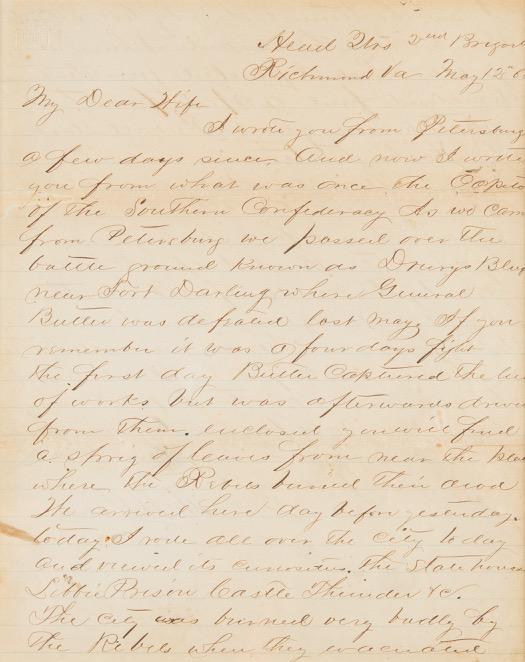 Head Qtrs 2nd
Richmond Va May 12th
My Dear Wife
I wrote you from Petersburg
a few days since. And now I write
you from what was once the
of the Southern Confederacy As we
from Petersburg we passed over the
battle ground known as Drurys
near Fort Darling where General
Butler was defeated last May. If you
remember it was a four days fight
the first day Butler Captured the
of works but was afterwards
from them. enclosed you will find
a sprig of leaves from near the
where the Rebels buried their dead
We arrived here day before yesterday.
today I rode all over the city to day
and viewed its curiosities. the State house
Libbie Prison Castle Thunder &c.
The city was burned very badly by
the Rebels when they evacuated